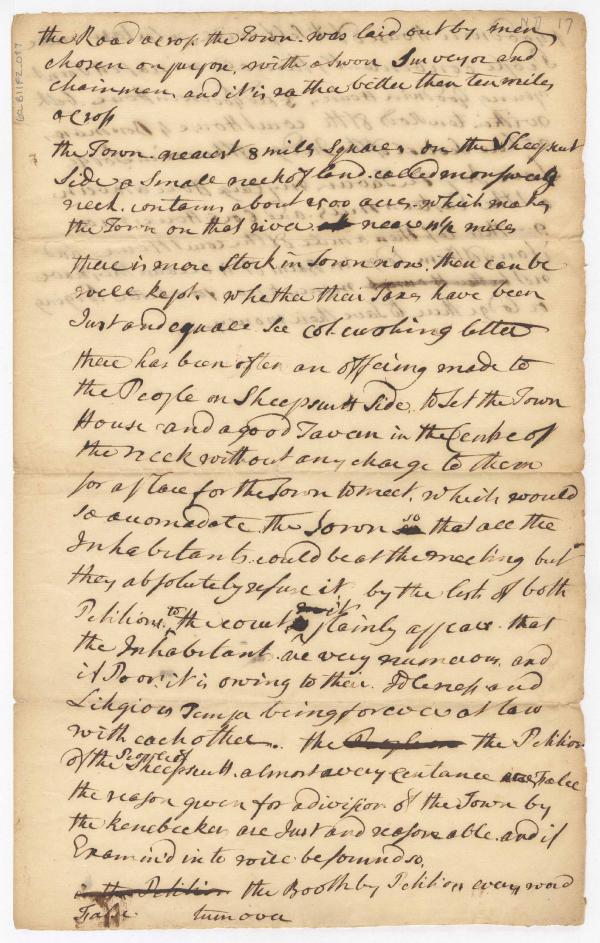 the Road acrost the Town. was laid out by men
chosen on purpose, with a Sworn Surveyor and
chainmen, and it is rather better then ten miles
acrost
the Town. nearest 8 miles Square, on the Sheepscutt
Side a Small neck of land. called monsweag
neck. contains about 2500 acres. which makes
the Town on that river near miles
there is more Stock in Town now. then can be
well kept. whether their Taxes have been
Just and equall See col. cushing letter
there has been often an offering made to
the People on Sheepscutt Side, to Set the Town
House and a good Tavern in the Centre of
the neck without any charge to them
for a place for the Town to meet, which would
so acomadate the Town so that all the
Inhabitants. could be at the meeting but
they absolutely refuse it by the list of both
Petitions to the court, it plainly appear that
the Inhabitant are very numerous and
if Poor. it is owing to their Idleness and
Litigious Temper being forever at law
with each other. the People on the Petition
of the People of Sheepscutt. almost avery Centance False
the reason given for a divison of the Town by
the kenebeeker are Just and reasoneable. and if
Examin'd in to will be found so,
in the Petition the Boothby Petition every word
False. turn over
17